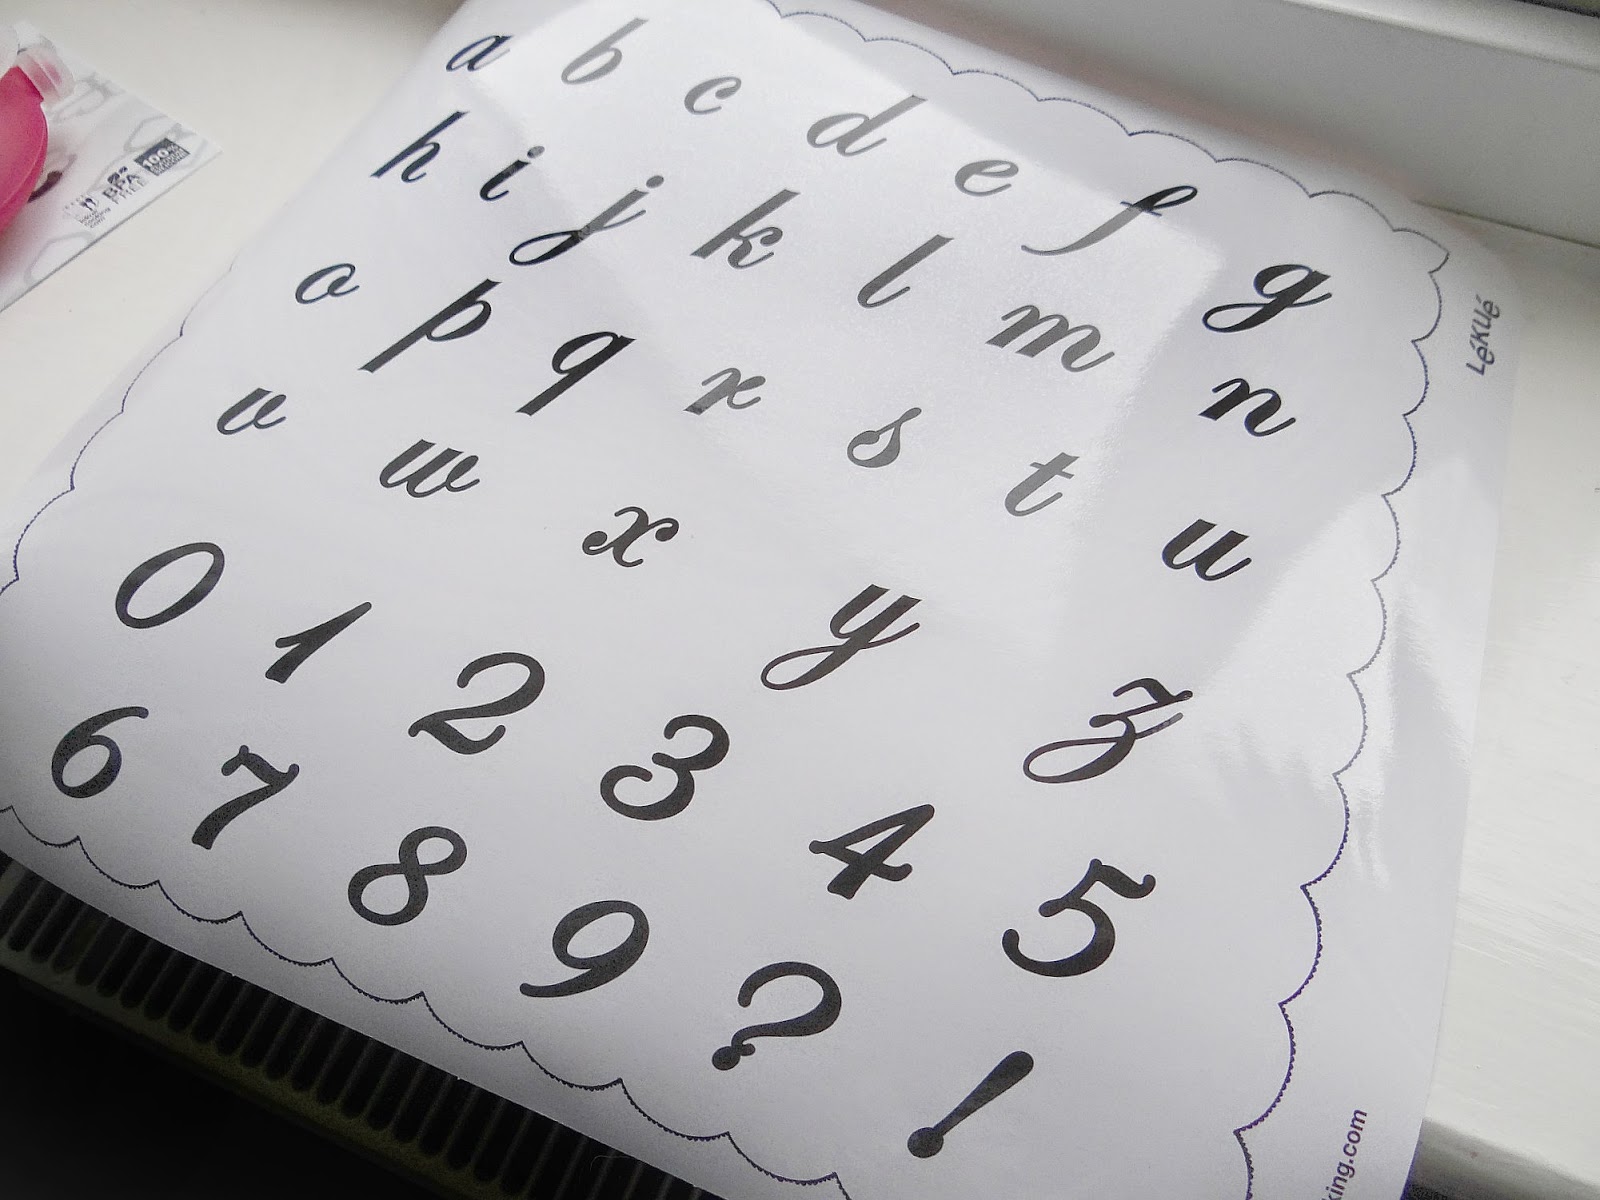 a b c d e f g
h i j k l m n
o p q r s t u
v w x y z
0 1 2 3 4 5
6 7 8 9 ? !
Lékué
king.com
100%
BPA
FREE